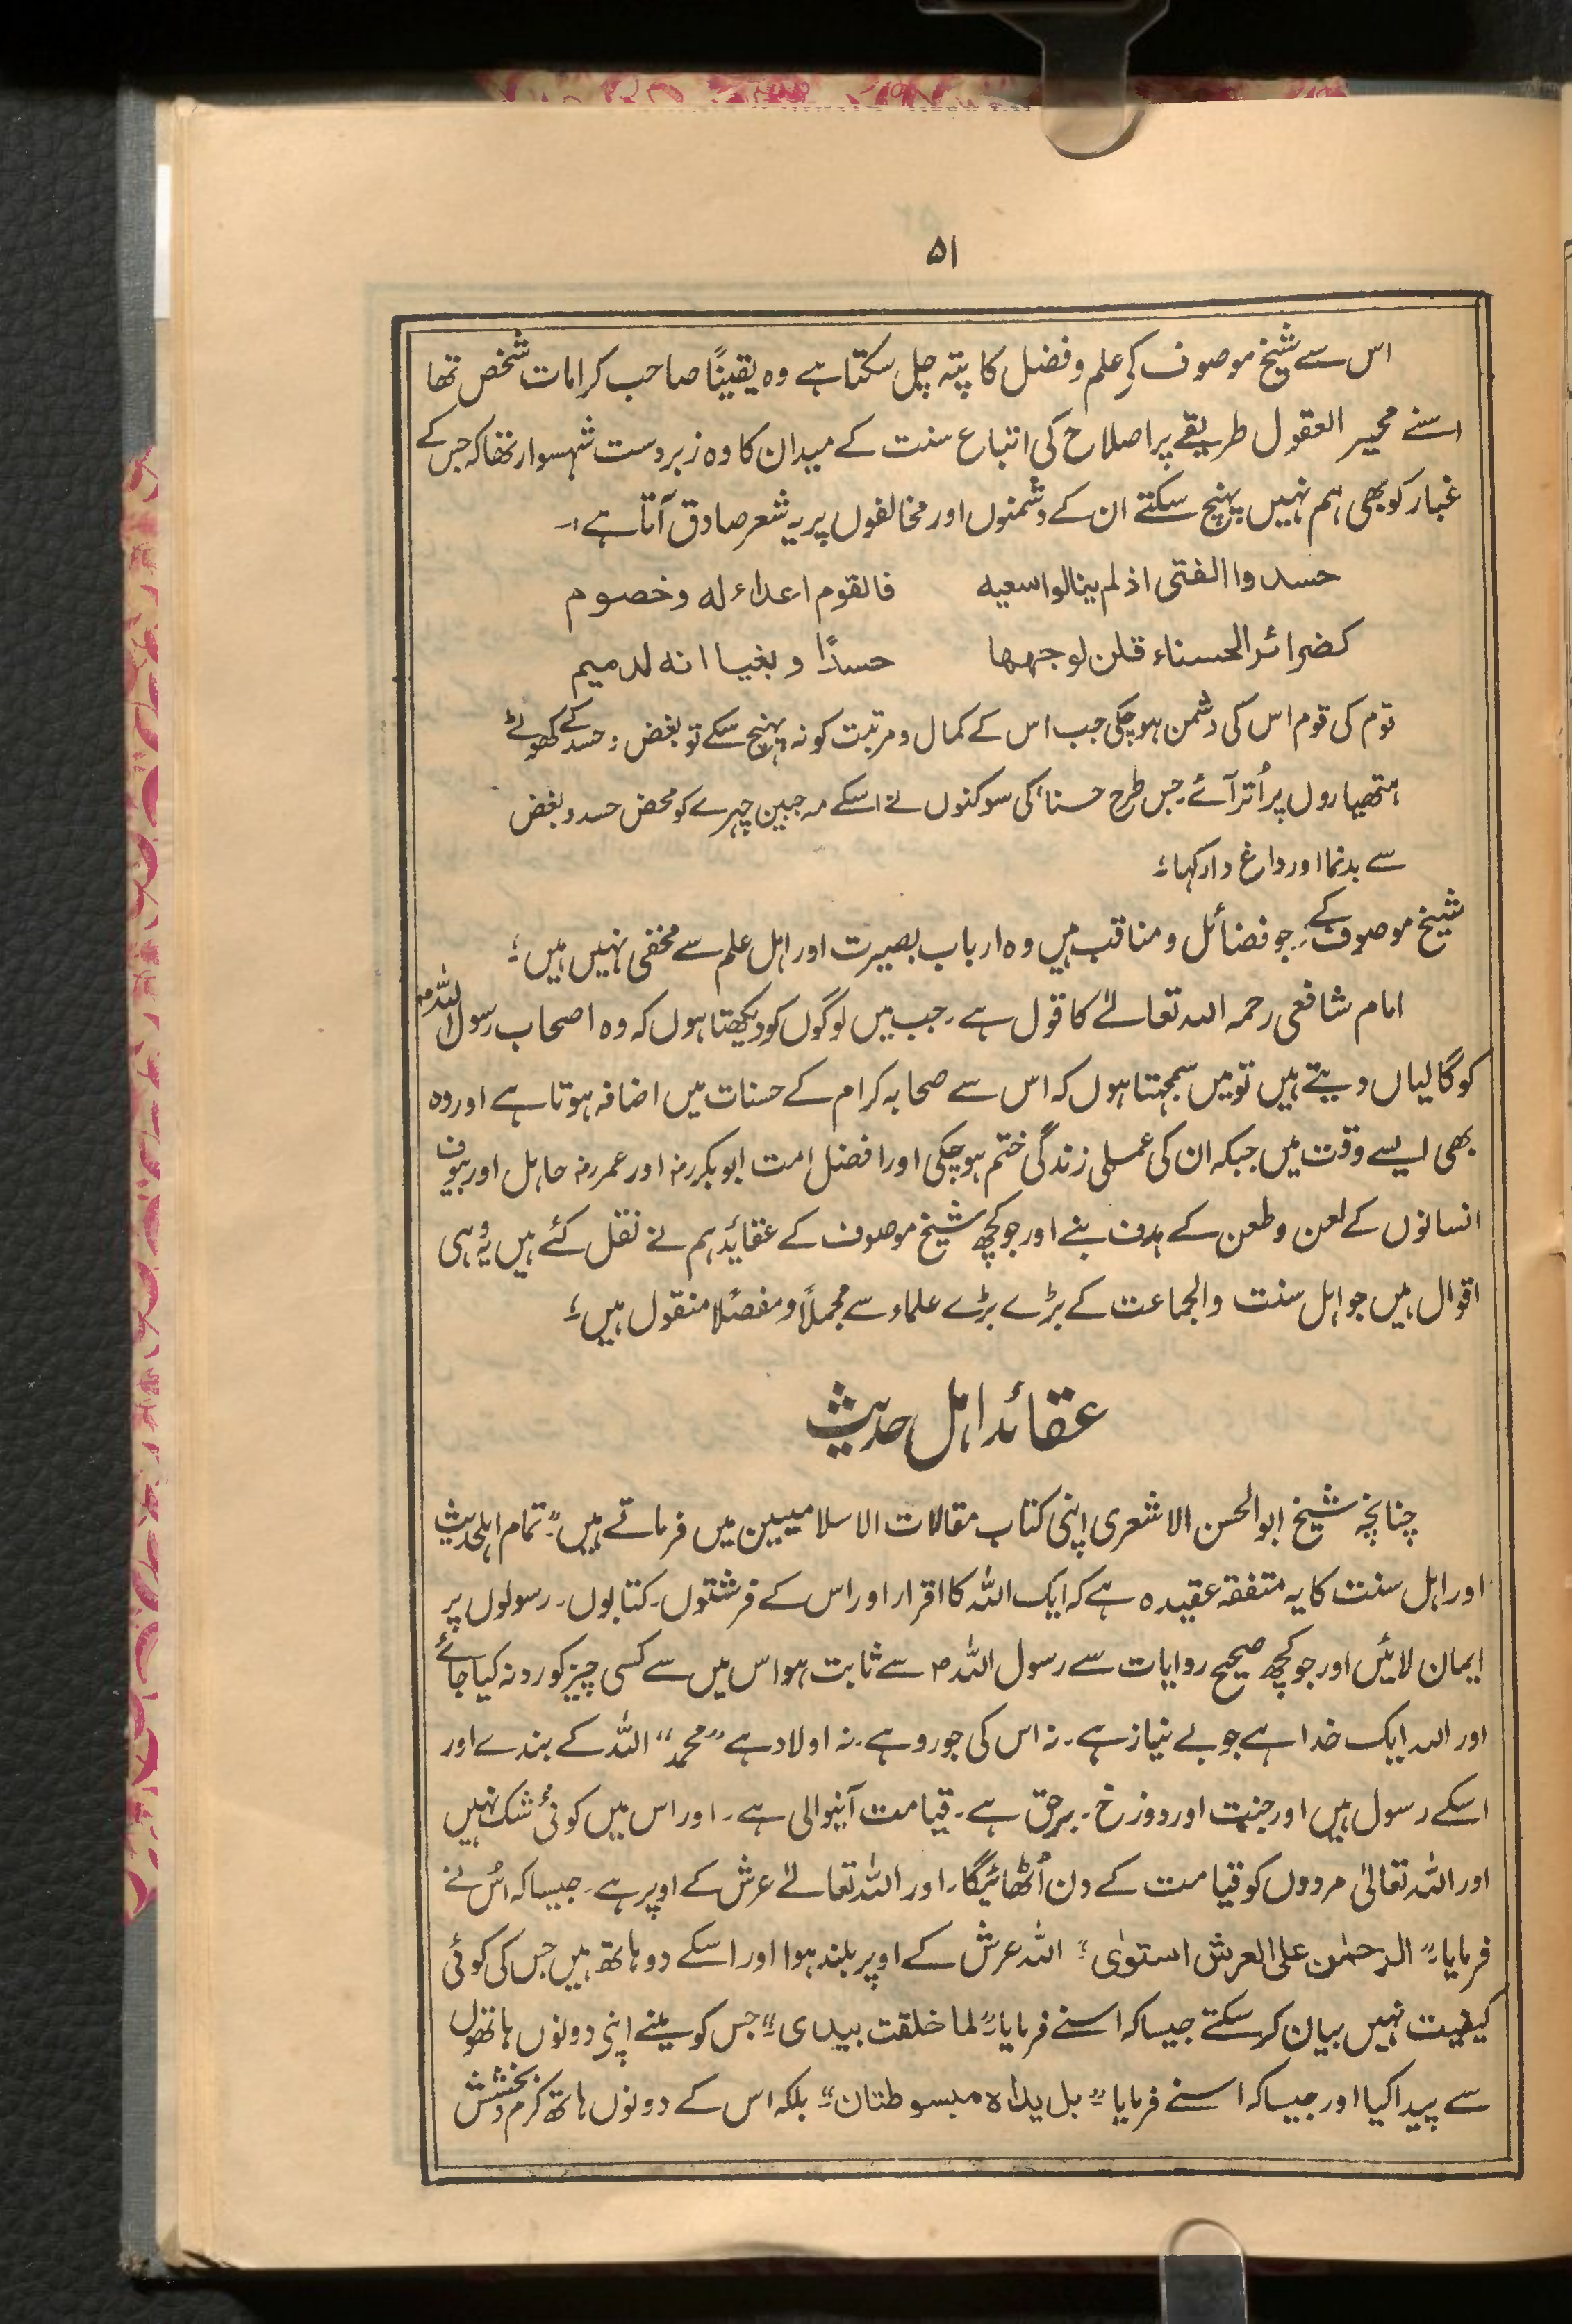 ۵۱
اس سے شیخ موصوف کے علم و فضل کا پتہ چل سکتا ہے وہ یقیناً صاحب کرامات شخص تھا
اسنے محیر العقول طریقے پر اصلاح کی اتباع سنت کے میدان کا وہ زبردست شہسوار تھا کہ جس کے
غبار کو بھی ہم نہیں پہنچ سکتے ان کے دشمنوں اور مخالفوں پر یہ شعر صادق آتا ہے :۔
حسدوا الفتی اذ لم ینالوا سعیه فالقوم اعداء له وخصوم
کضرائر الحسناء قلن لوجهها حسدًا و بغیا انه لدمیم
قوم کی قوم اس کی دشمن ہو چکی جب اس کے کمال و مرتبت کو نہ پہنچ سکے تو بغض و حسد کے کھوٹے
ہتھیاروں پر اُتر آئے۔ جس طرح حسناء کی سوکنوں نے اسکے مہ جبین چہرے کو محض حسد و بغض
سے بدنما اور داغ دار کہا ؛
شیخ موصوف کے جو فضائل و مناقب ہیں وہ ارباب بصیرت اور اہل علم سے مخفی نہیں ہیں ؛
امام شافعی رحمہ اللہ تعالےٰ کا قول ہے۔ جب میں لوگوں کو دیکھتا ہوں کہ وہ اصحاب رسول اللہ ؐ
کو گالیاں دیتے ہیں تو میں سمجہتا ہوں کہ اس سے صحابہ کرام کے حسنات میں اضافہ ہوتا ہے اور وہ
بھی ایسے وقت میں جبکہ ان کی عملی زندگی ختم ہو چکی اور افضل امت ابو بکر رضہ اور عمر رضہ جاہل اور بیوف
انسانوں کے لعن و طعن کے ہدف بنے اور جو کچھ شیخ موصوف کے عقائد ہم نے نقل کئے ہیں یہ وُہی
اقوال ہیں جو اہل سنت والجماعت کے بڑے بڑے علماء سے مجملاً و مفصلًا منقول ہیں ؛
عقائد اہل حدیث
چنانچہ شیخ ابو الحسن الاشعری اپنی کتاب مقالات الاسلامیین میں فرماتے ہیں:" تمام اہلحدیث
اور اہل سنت کا یہ متفقہ عقیدہ ہے کہ ایک اللہ کا اقرار اور اس کے فرشتوں۔ کتابوں۔ رسولوں پر
ایمان لائیں اور جو کچھ صحیح روایات سے رسول اللہ ؐ سے ثابت ہو اس میں سے کسی چیز کو رد نہ کیا جائے
اور اللہ ایک خدا ہے جو بے نیاز ہے۔ نہ اس کی جورو ہے۔ نہ اولاد ہے "محمدؐ" اللہ کے بندے اور
اسکے رسول ہیں اور جنت اور دوزخ۔ برحق ہے۔ قیامت آنیوالی ہے۔ اور اس میں کوئی شک نہیں
اور اللہ تعالیٰ مردوں کو قیامت کے دن اُٹھائیگا۔ اور اللہ تعالےٰ عرش کے اوپر ہے۔ جیسا کہ اُس نے
فرمایا:" الرحمٰن علی العرش استوٰی " اللہ عرش کے اوپر بلند ہوا اور اسکے دو ہاتھ ہیں جس کی کوئی
کیفیت نہیں بیان کر سکتے جیسا کہ اسنے فرمایا:" لما خلقت بیدی :" جس کو مینے اپنی دونوں ہاتھوں
سے پیدا کیا اور جیسا کہ اسنے فرمایا :" بل یداہ مبسوطتان :" بلکہ اس کے دونوں ہاتھ کرم و بخشش